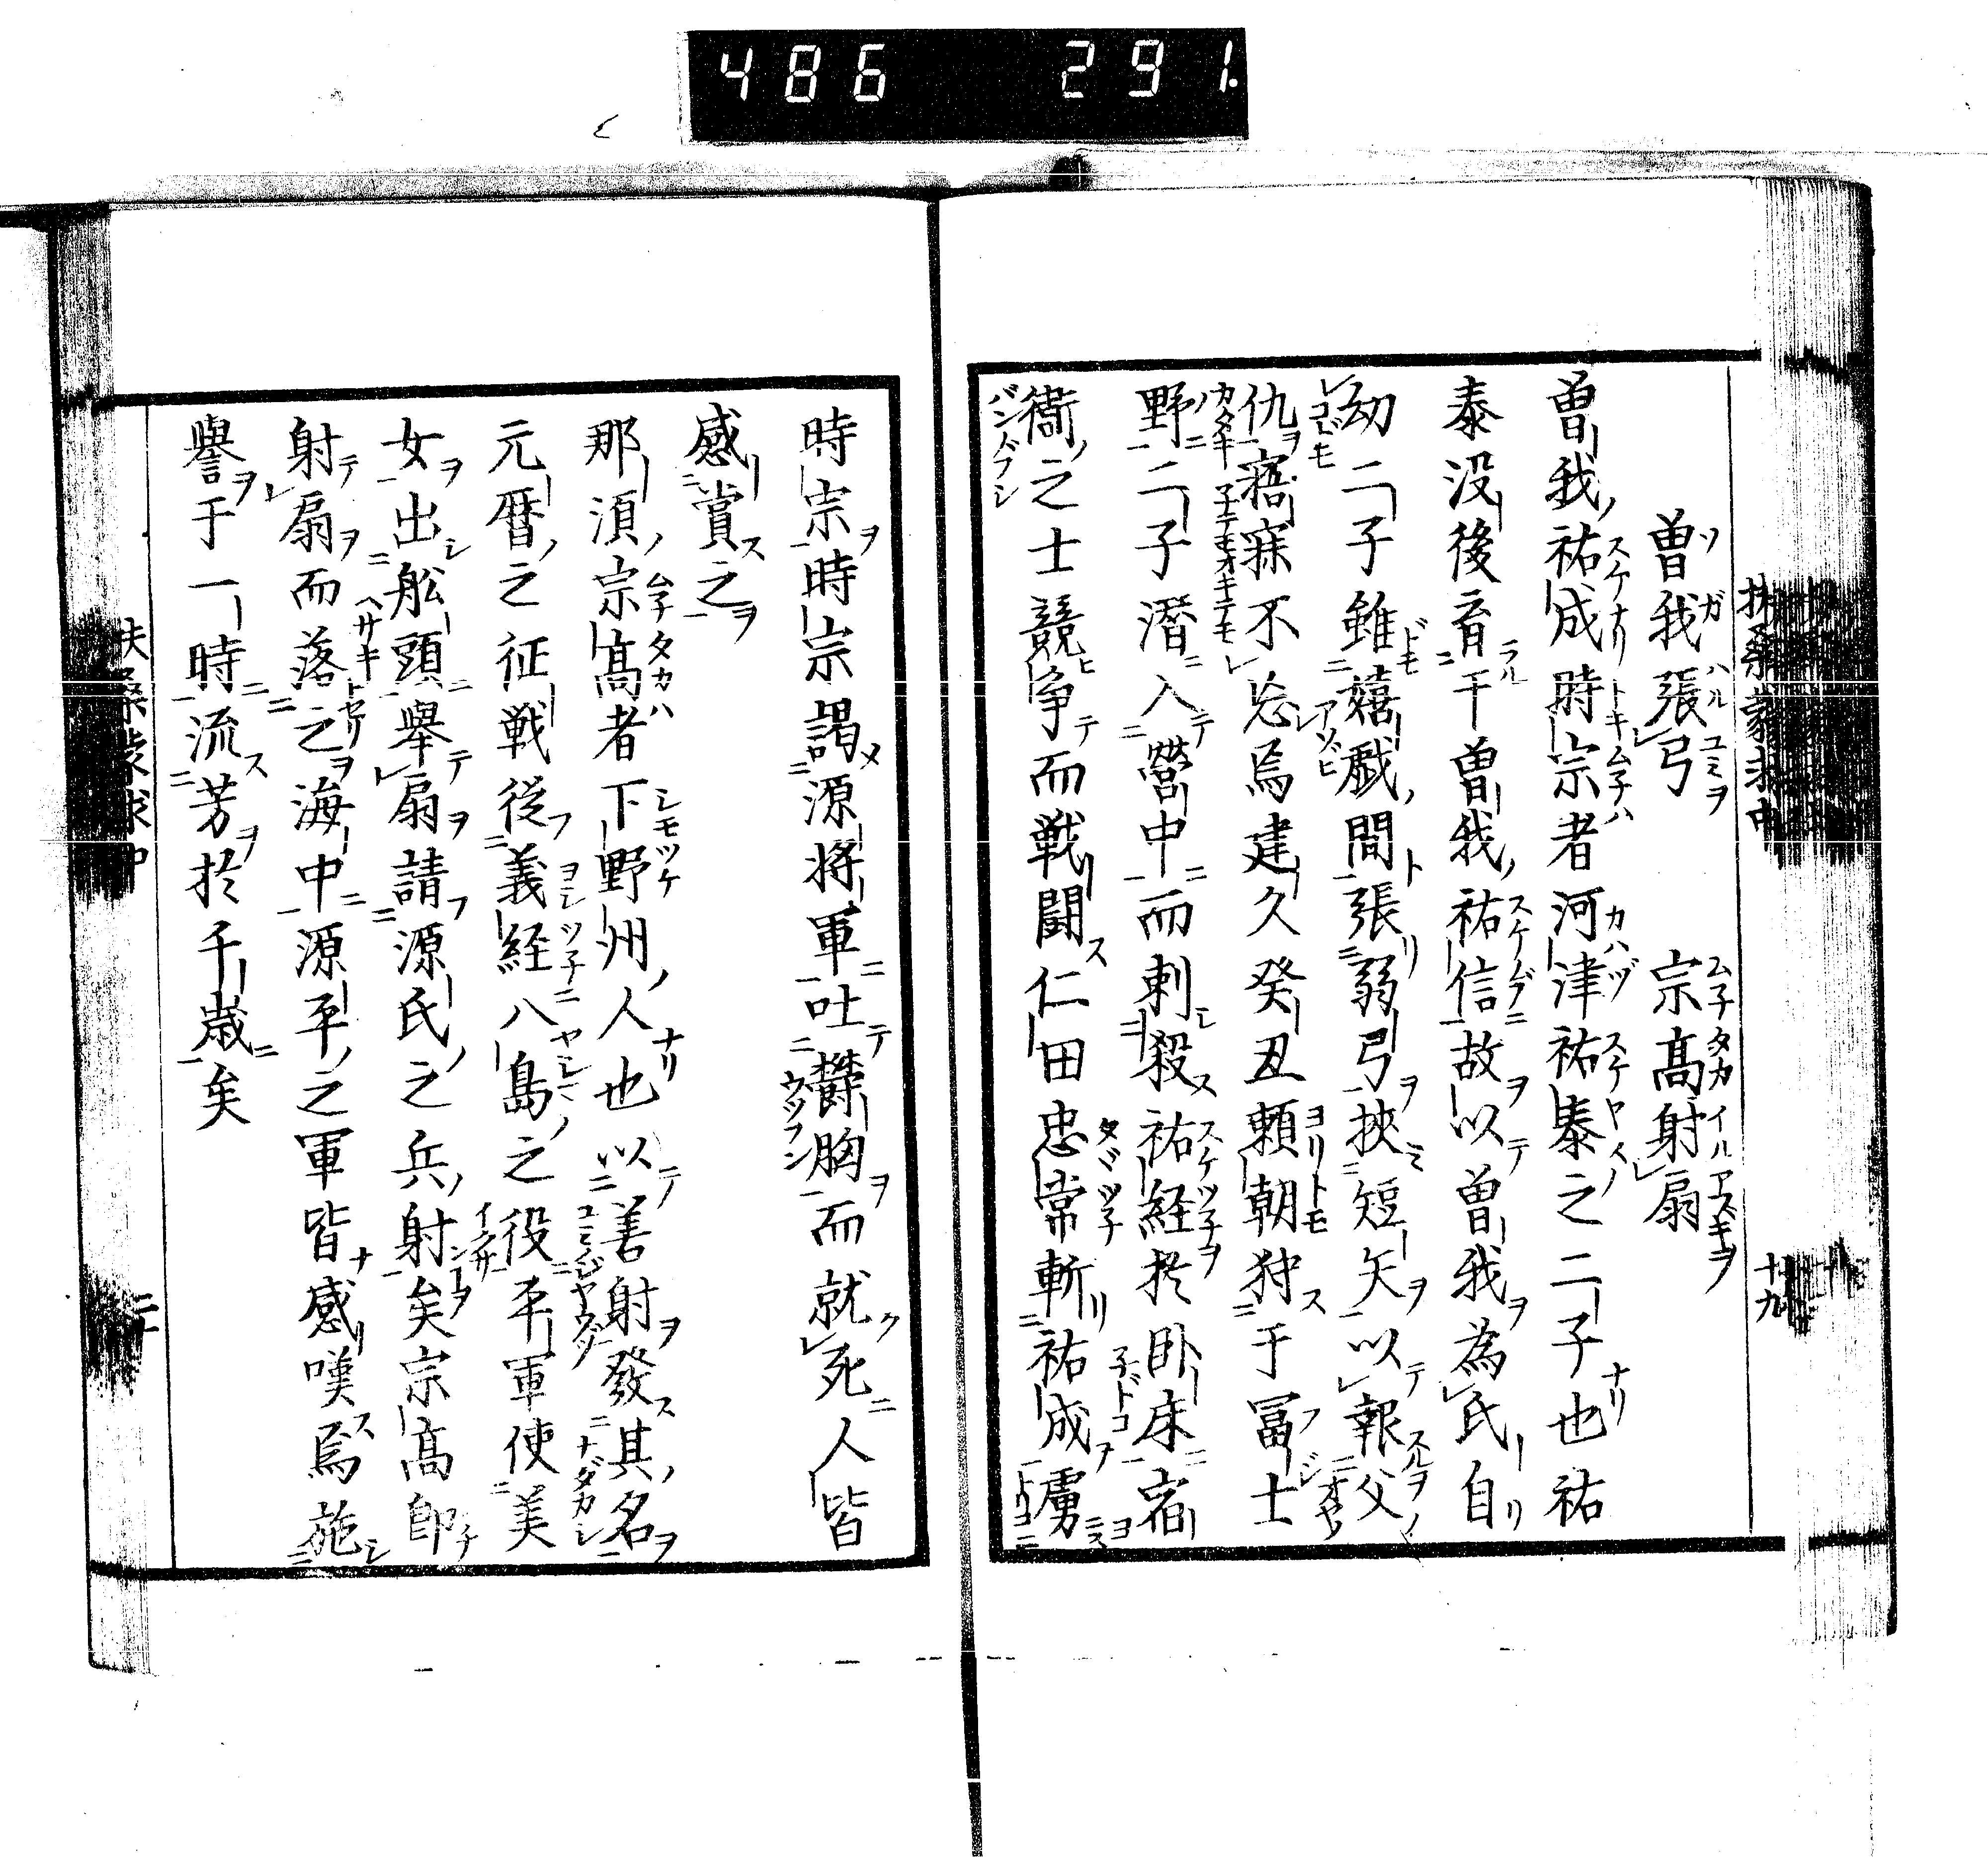 486 291.
扶桑蒙求中 十九
曽我張弓 宗髙射扇
曽我祐成時宗者河津祐泰之二子也祐
泰没後育干曽我祐信故以曽我為氏自
幼二子雖嬉戯間張弱弓挾短矢以報父
仇寤寐不忘焉建久癸丑頼朝狩于冨士
野二子潛入營中而刺殺祐経於卧床宿
衞之士競争而戦闘仁田忠常斬祐成虜
時宗時宗謁源将軍吐欝胸而就死人皆
感賞之
那須宗髙者下野州人也以善射發其名
元暦之征戦従義経八島之役平軍使美
女出舩頭舉扇請源氏之兵射矣宗髙即
射扇而落之海中源平之軍皆感嘆焉施
譽于一時流芳於千歳矣